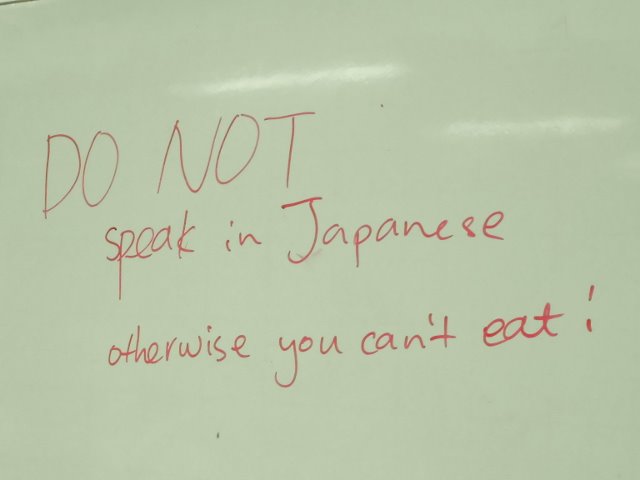 DO NOT
speak in Japanese
otherwise you can't eat!